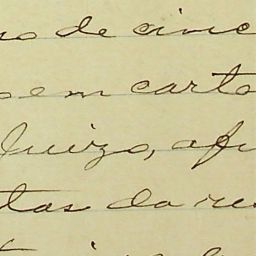 no de cinc
em carto
Juizo, afi
tas da re